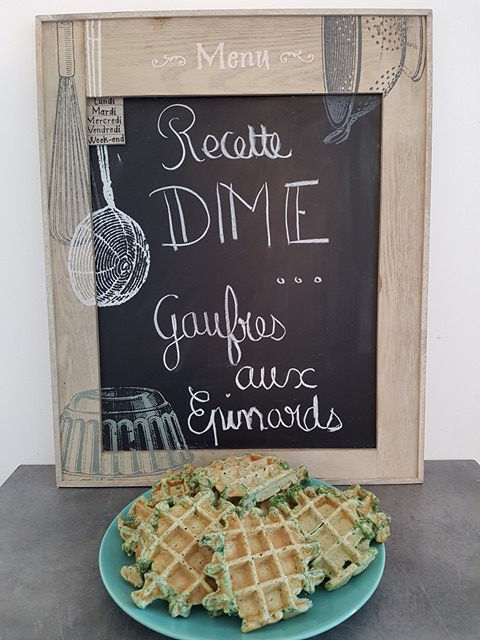 Menu
Lundi
Mardi
Mercredi
Vendredi
Week-end
Recette
DIME
...
Gaufres
aux
Epinards